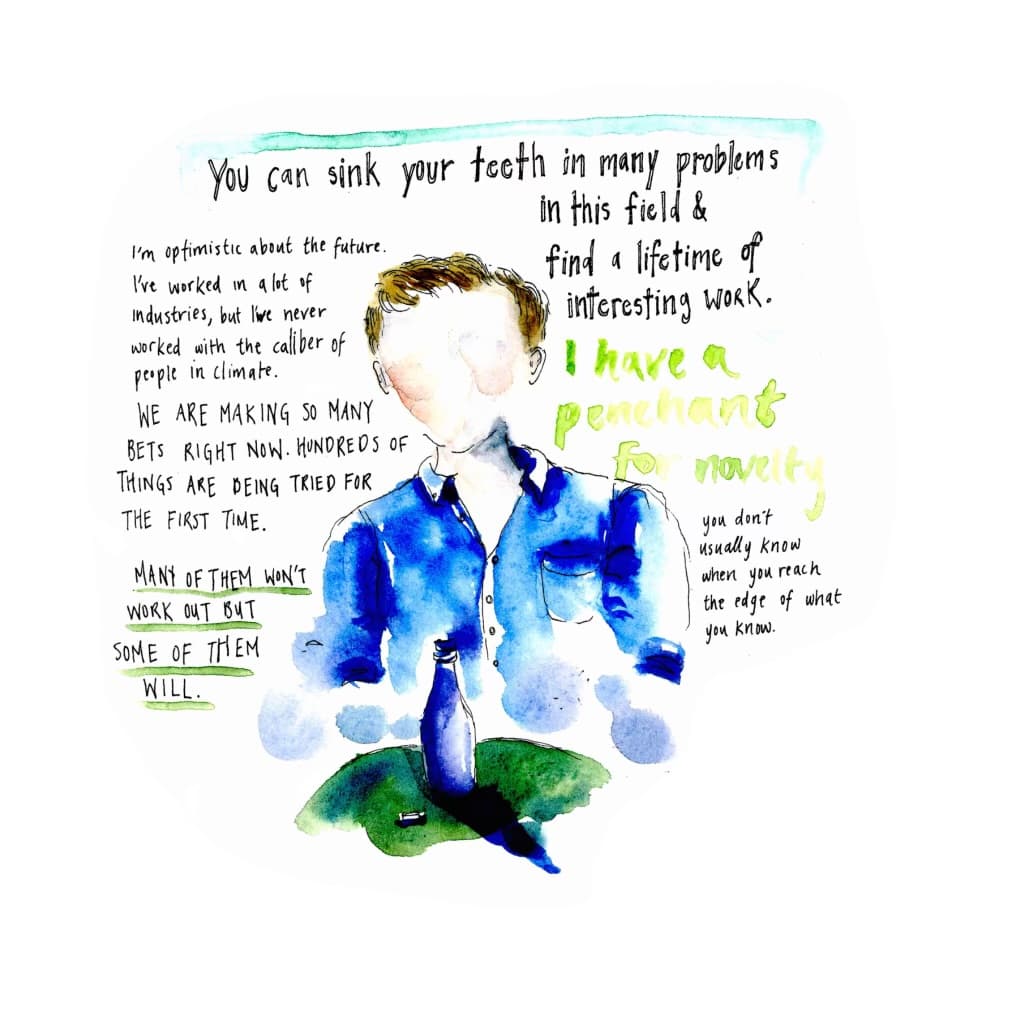 You can sink your teeth in many problems
in this field &
find a lifetime of
interesting work.
I'm optimistic about the future.
I've worked in a lot of
industries, but I've never
worked with the caliber of
people in climate.
WE ARE MAKING SO MANY
BETS RIGHT NOW. HUNDREDS OF
THINGS ARE BEING TRIED FOR
THE FIRST TIME.
MANY OF THEM WON'T
WORK OUT BUT
SOME OF THEM
WILL.
I have a
penchant
for novelty
you don't
usually know
when you reach
the edge of what
you know.